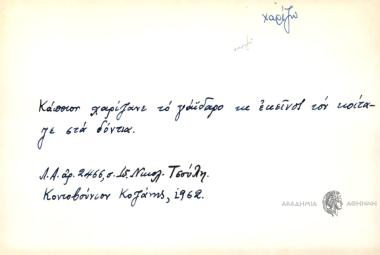 χαρίζω
Κάποιον χαρίζανε τό γάιδαρο κε ἐκεῖνος τόν κοίτα-
γε στά δόντια.
Λ.Α. ἀρ. 2466, σ. Νικολ. Τσούλη.
Κοντοβούνιον Κοζάνης, 1962.
ΑΚΑΔΗΜΙΑ ΑΘΗΝΩΝ